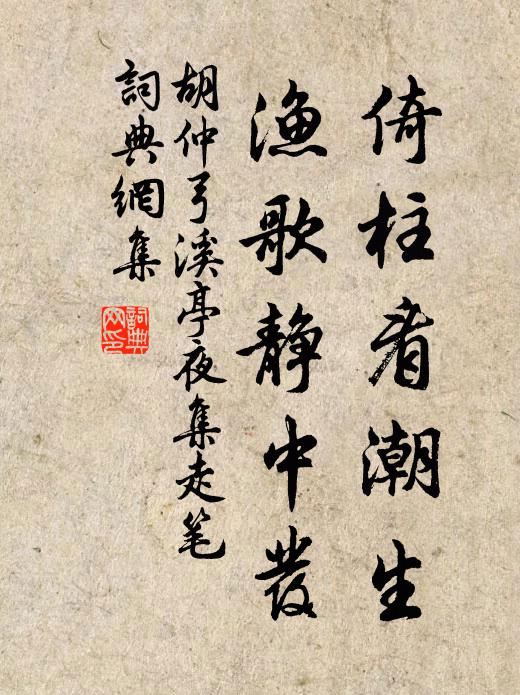 倚柱看潮生
漁歌静中發
胡仲弓溪亭夜集走笔
詞典網集
詞典網印